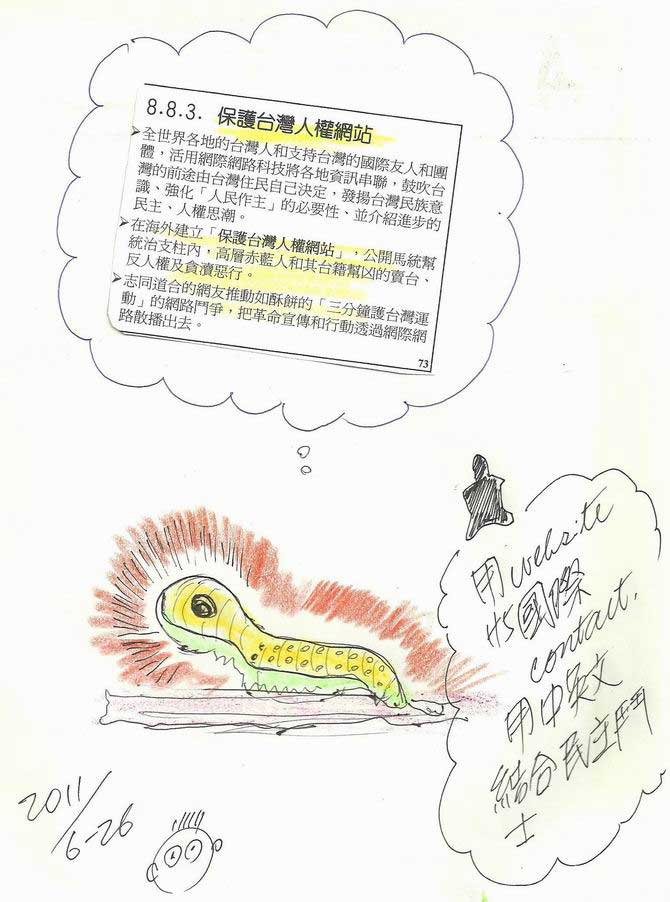 8.8.3. 保護台灣人權網站
➢全世界各地的台灣人和支持台灣的國際友人和團
體，活用網際網路科技將各地資訊串聯，鼓吹台
灣的前途由台灣住民自己決定，發揚台灣民族意
識、強化「人民作主」的必要性、並介紹進步的
民主、人權思潮。
➢在海外建立「保護台灣人權網站」，公開馬統幫
統治支柱內，高層赤藍人和其台籍幫凶的賣台、
反人權及貪瀆惡行。
➢志同道合的網友推動如酥餅的「三分鐘護台灣運
動」的網路鬥爭，把革命宣傳和行動透過網際網
路散播出去。
73
用website
國際
contact.
用中英文
結合民主鬥
士
2011/
6-26